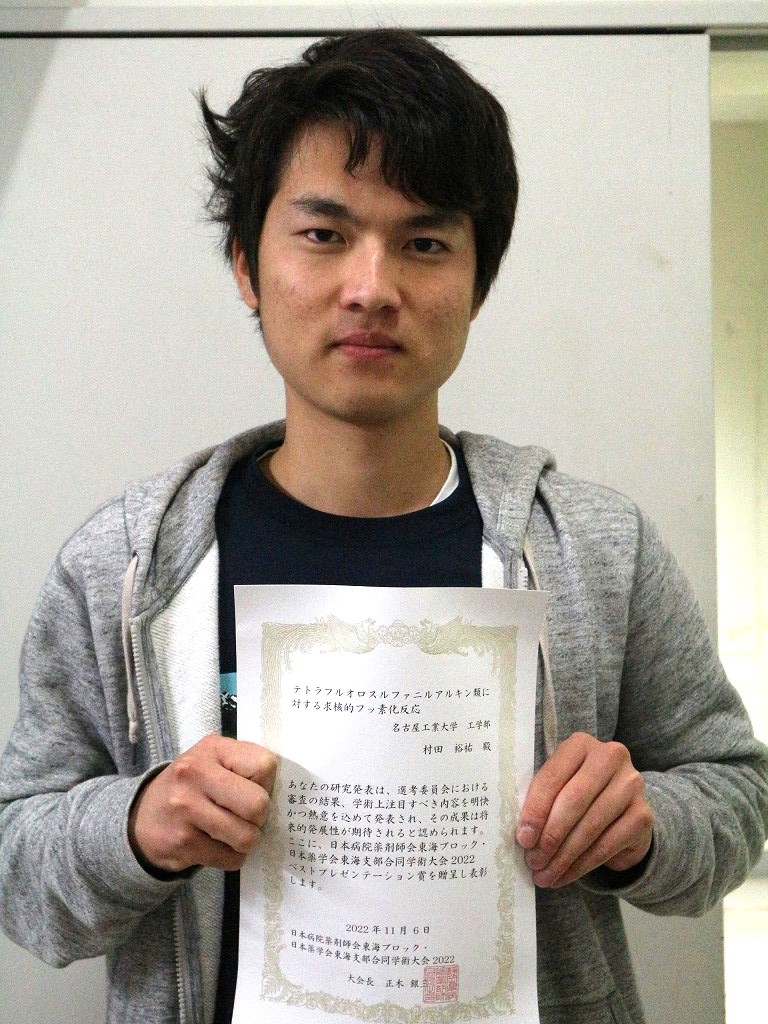 テトラフルオロスルファニルアルキン類に
対する求核的フッ素化反応
名古屋工業大学　工学部
村田　裕祐 殿
あなたの研究発表は、選考委員会における
審査の結果、学術上注目すべき内容を明快
かつ熱意を込めて発表され、その成果は将
来的発展性が期待されると認められます。
ここに、日本病院薬剤師会東海ブロック・
日本薬学会東海支部合同学術大会2022
ベストプレゼンテーション賞を贈呈し表彰
します。
2022年11月6日
日本病院薬剤師会東海ブロック・
日本薬学会東海支部合同学術大会2022
大会長　正木 銀三